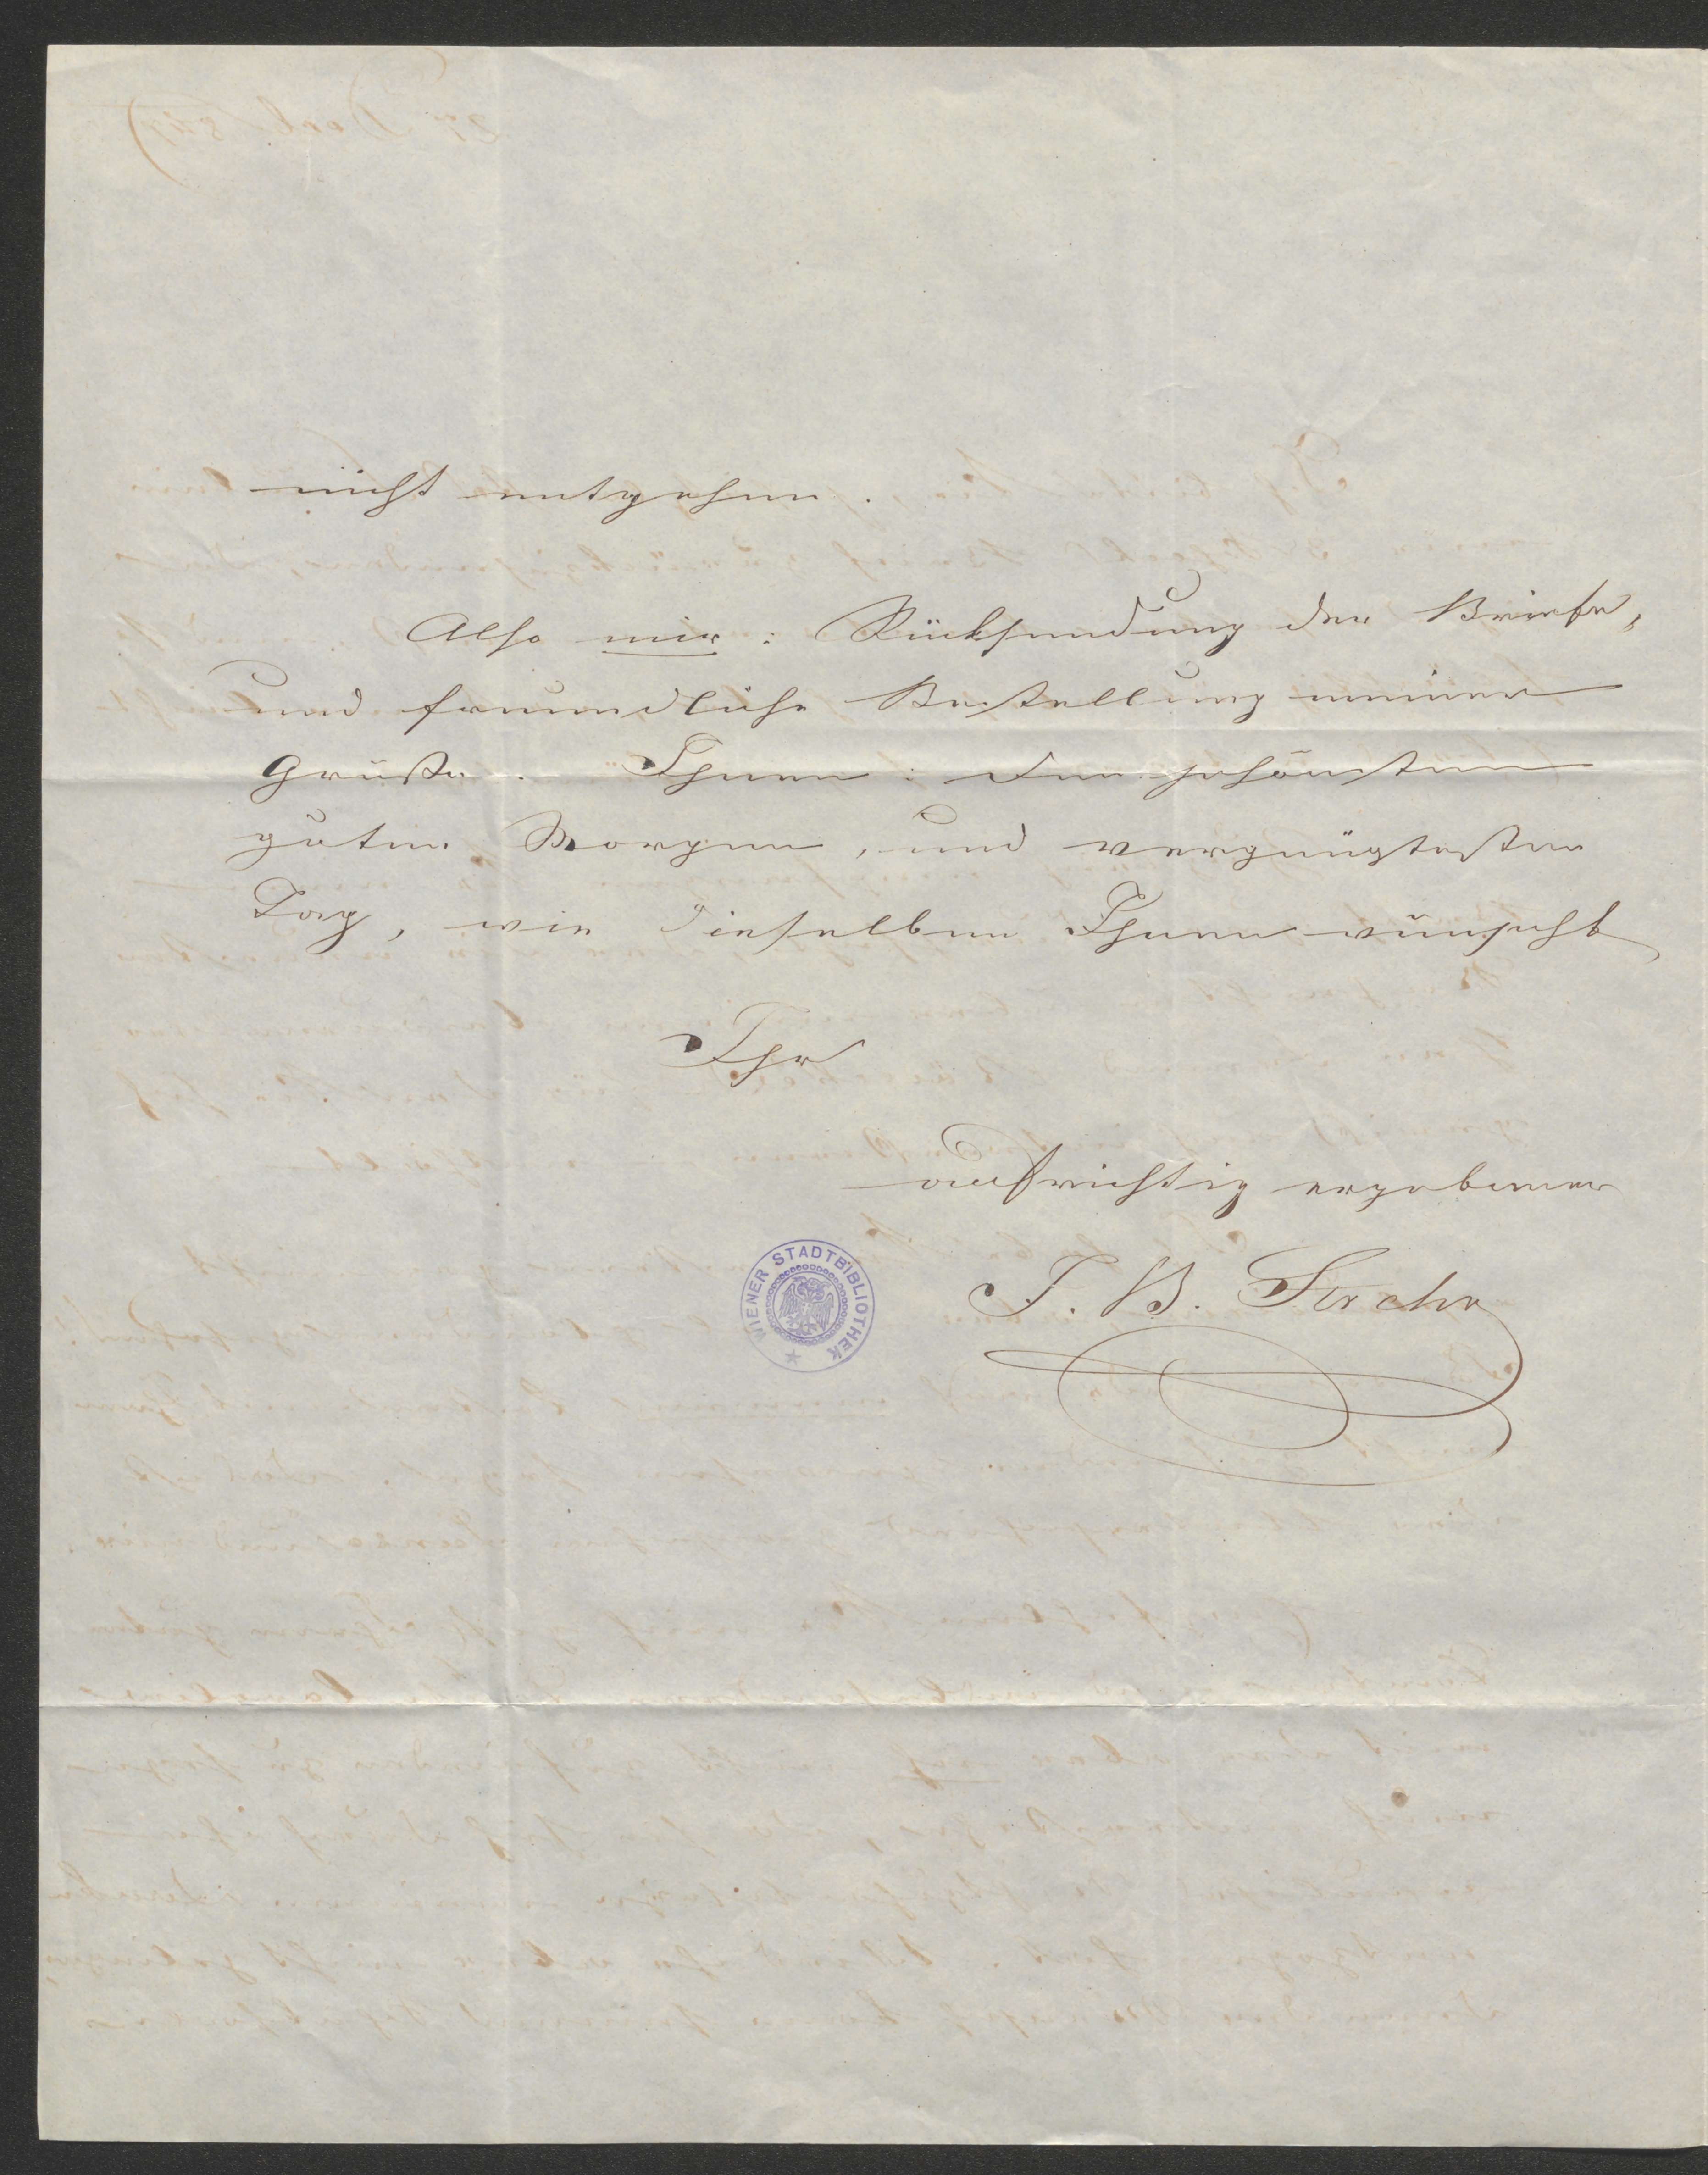 nicht entgehen.
Also mir: Rücksendung der Briefe,
und freundliche Bestellung meiner
Grüße. Ihnen: den schönsten
guten Morgen, und vergnügtesten
Tag, wie dieselben Ihnen wünscht
Ihr
aufrichtig ergebener
J. B.
WIENER STADTBIBLIOTHEK